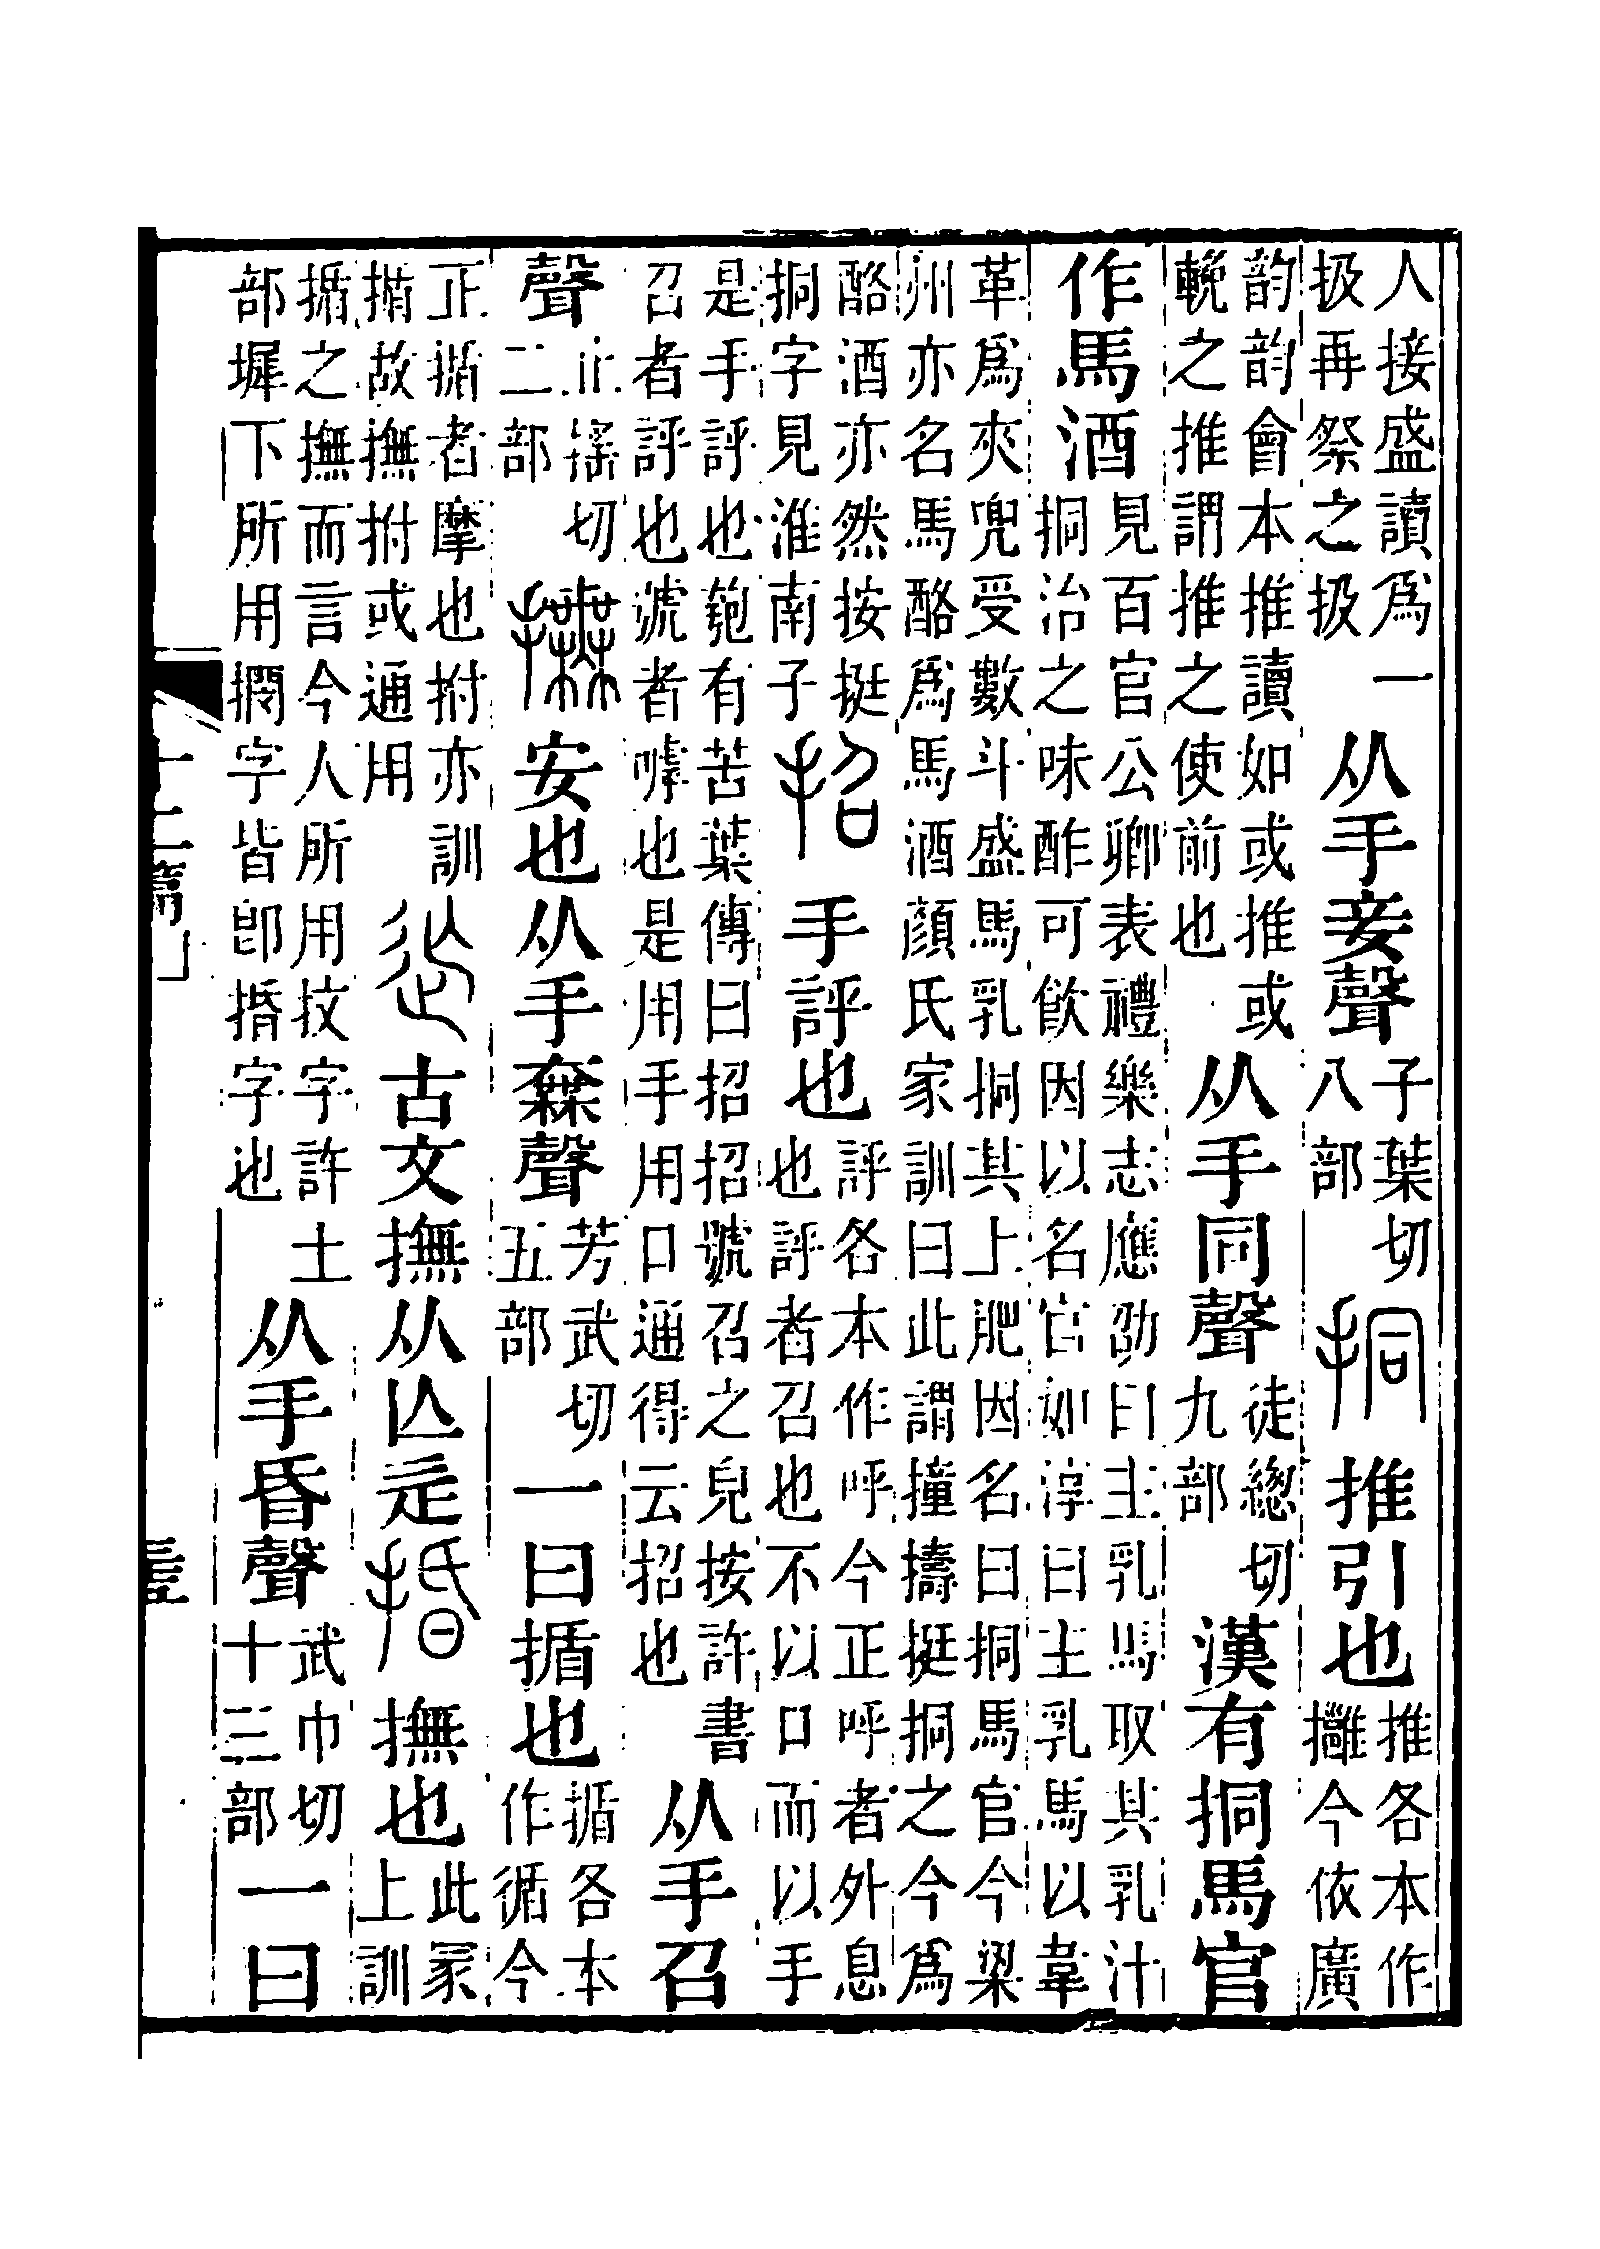 人接盛讀爲一扱再祭之扱从手妾聲子葉切八部挏推引也推各本作攤今依廣
韵韵會本推讀如或推或輓之推謂推之使前也从手同聲徒緫切九部漢有挏馬官
作馬酒見百官公卿表禮樂志應劭曰主乳馬取其乳汁挏治之味酢可飮因以名官如淳曰主乳馬以韋
革爲夾兜受數斗盛馬乳挏其上肥因名曰挏馬官今梁州亦名馬酪爲馬酒顏氏家訓曰此謂撞擣挺挏之今爲
酪酒亦然按挺挏字見淮南子招手評也評各本作呼今正呼者外息也評者召也不以口而以手
是手評也匏有苦葉傳曰招招號召之皃按許書召者評也號者嘑也是用手用口通得云招也从手召
聲止搖切二部撫安也从手橆聲芳武切五部一曰揗也揗各本作循今
正揗者摩也拊亦訓揗故撫拊或通用𨒪古文撫从亾辵捪撫也此冡上訓
揗之撫而言今人所用抆字許土部墀下所用㨉字皆卽捪字也从手昏聲武巾切十三部一曰
十二篇上